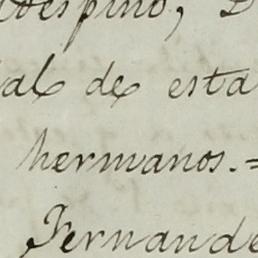 al de esta
hermanos.=
Fernande